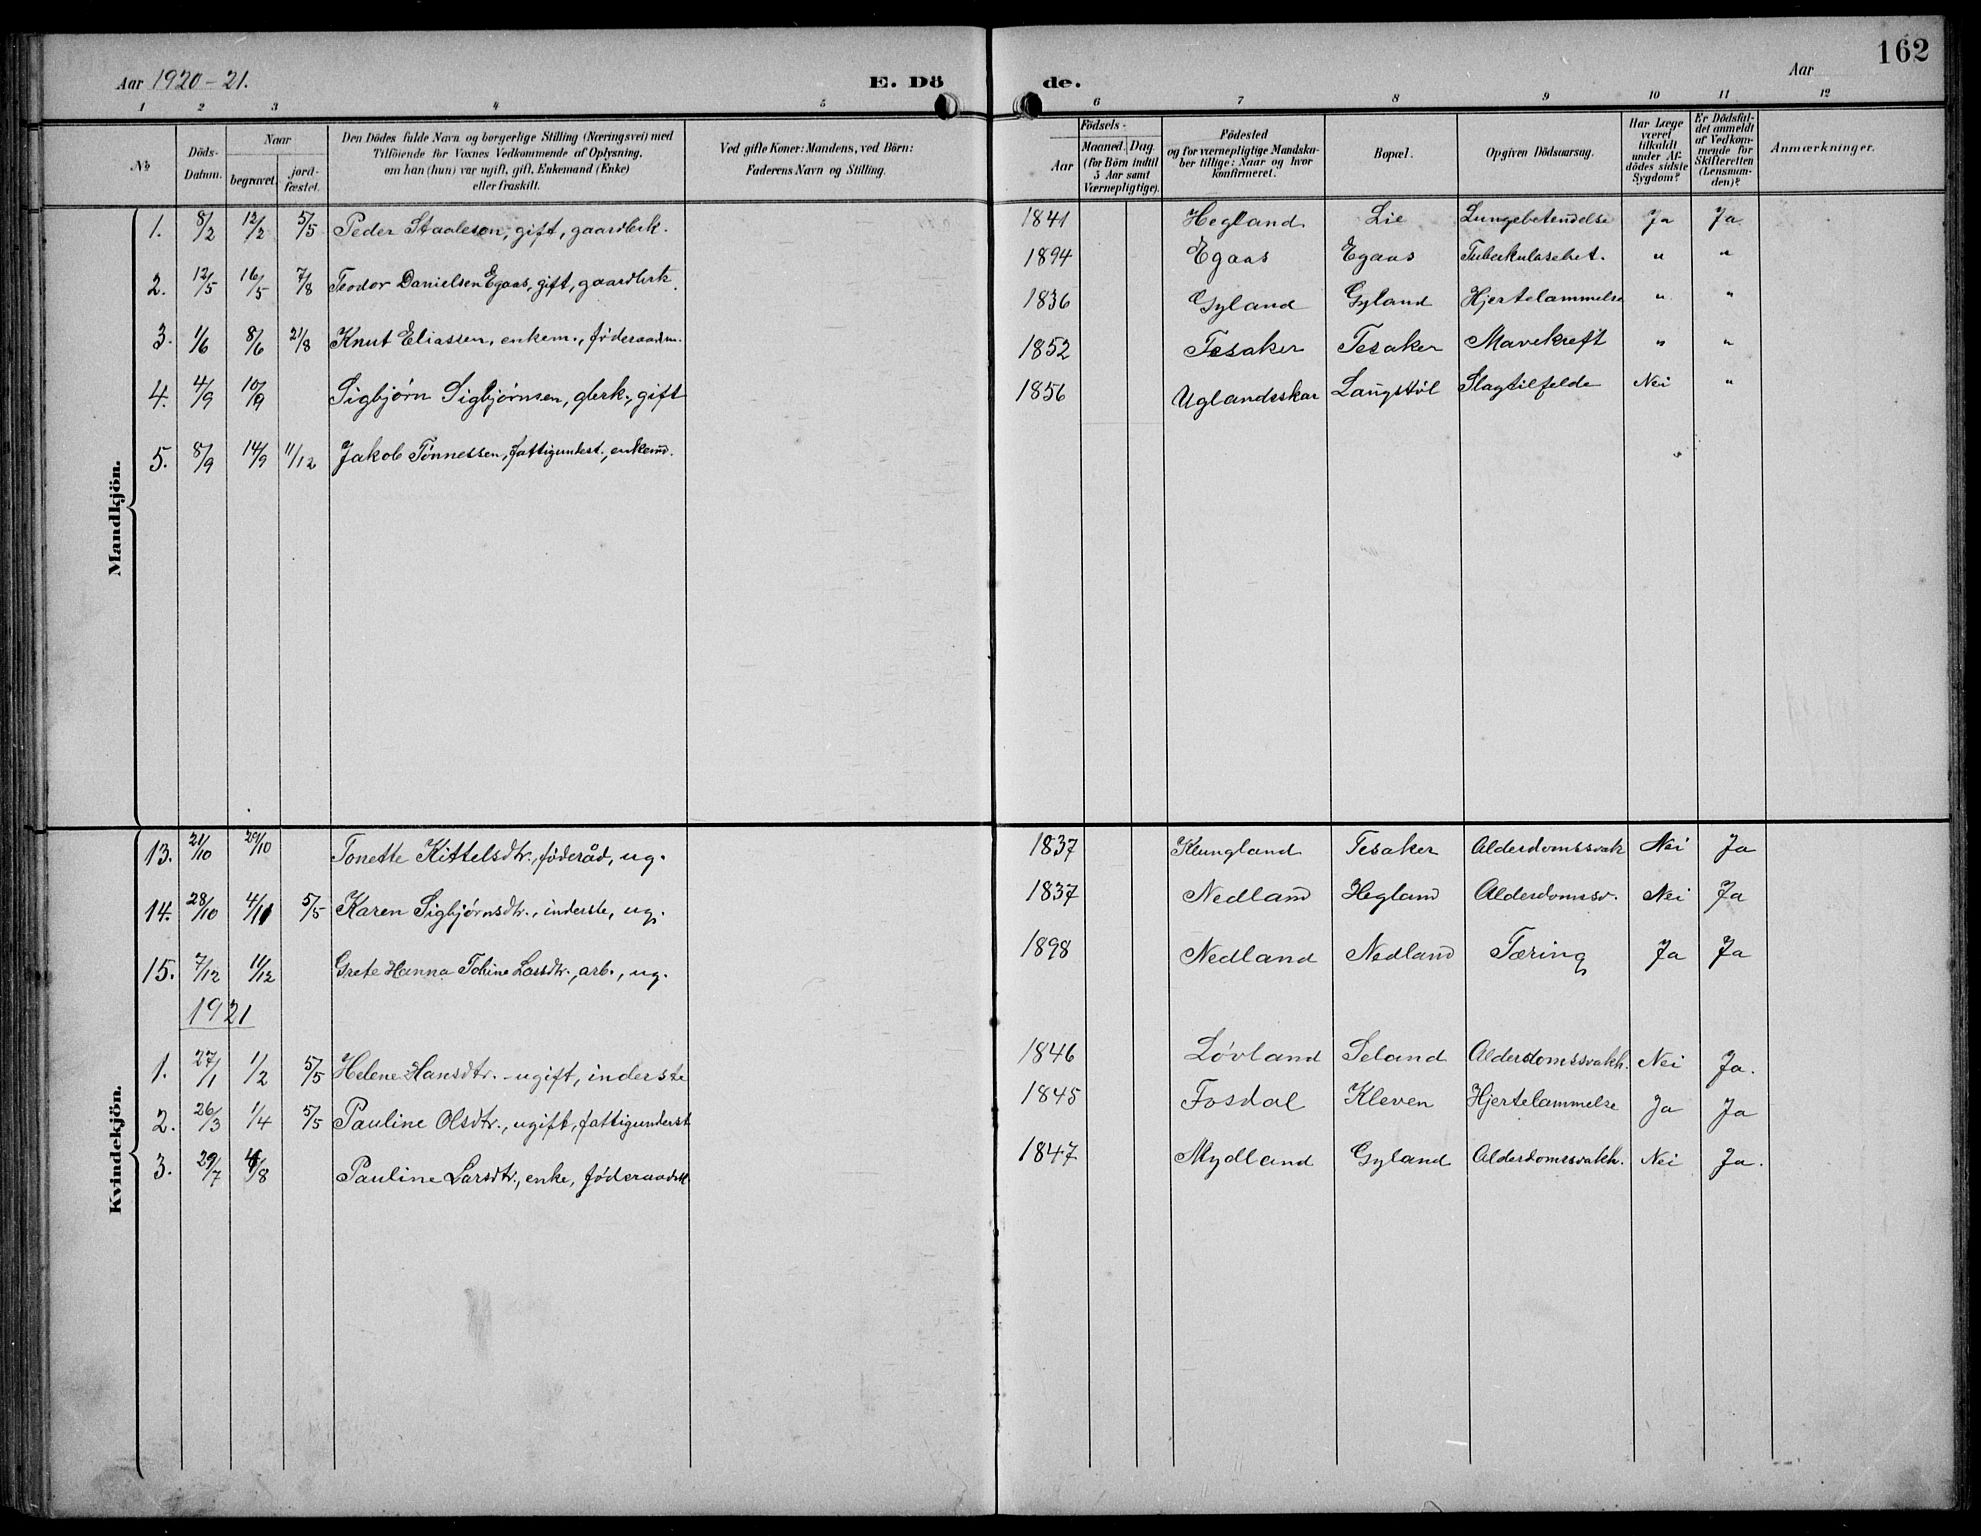 162
Aar 1920-21. E. Dö de. Aar
1 2 3 4 5 6 7 8 9 10 11 12
No
Döds-Datum.
Naar
begravet.
jordfæstet.
Den Dödes fulde Navn og borgerlige Stilling (Næringsvei) med
Tilföiende for Voxnes Vedkommende af Oplysning,
om han (hun) var ugift, gift, Enkemand (Enke)
eller fraskilt.
Ved gifte Koner: Mandens, ved Börn:
Faderens Navn og Stilling.
Födsels-
Aar
Maaned. Dag.
(for Börn indtil
5 Aar samt
Værnepligtige).
Födested
og for værnepligtige Mandska-
ber tillige: Naar og hvor
konfirmeret.
Bopæl.
Opgiven Dödsaarsag.
Har Læge
været
tilkaldt
under Af-
dödes sidste
Sygdom?
Er Dödsfal-
det anmeldt
af Vedkom-
mende for
Skifteretten
(Lensman-
den)?
Anmærkninger.
Mandkjön.
1. 8/2 12/2 5/5 Peder Staalesen, gift, gaardbrk. 1841 Hegland Lie Lungebetendelse Ja Ja
2. 12/5 16/5 7/8 Teodor Danielsen Egaas, gift, gaardbrk. 1894 Egaas Egaas Tuberkulosehet. " "
3. 1/6 8/6 21/8 Knut Eliassen, enkem., föderaadm. 1836 Gyland Gyland Hjertelammelse " "
4. 4/9 10/9 Sigbjørn Sigbjørnsen, gbrk., gift 1852 Tesaker Tesaker Mavekreft " "
5. 8/9 14/9 11/12 Jakob Tønnessen, fattigundest., enkemd. 1856 Uglandsskar Laugstøl Slagtilfelde Nei "
Kvindekjön.
13. 21/10 29/10 Tonette Kittelsdtr., føderåd, ug. 1837 Klungland Tesaker Alderdomssvak Nei Ja
14. 28/10 4/11 5/5 Karen Sigbjørnsdtr., inderste, ug. 1837 Nedland Hegland Alderdomssv. Nei Ja
15. 7/12 11/12 Grete Hanna Toline Larsdtr., arb., ug. 1898 Nedland Nedland Tæring Ja Ja
1921
1. 27/1 1/2 5/5 Helene Hansdtr. - ugift, inderste 1846 Løvland Seland Alderdomssvakh. Nei Ja.
2. 26/3 1/4 5/5 Pauline Olsdtr., ugift, fattigunderst 1845 Fosdal Kleven Hjertelammelse Ja Ja
3. 29/7 4/8 Pauline Larsdtr., enke, føderaadsk 1847 Mydland Gyland Alderdomssvakh. Nei Ja.